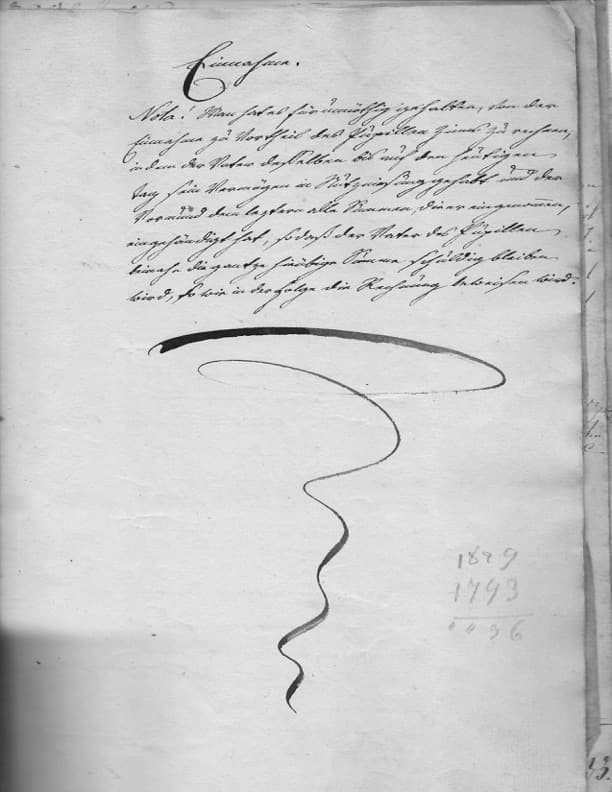 Einnahme.
Nota! Man hat es für unnöthig gehalten, von der
Einnahme zu Vortheil des Pupillen Zinns zu rechnen,
indem der Vater desselben bis auf den heutigen
tag sein Vermögen in Nutzniesung gehabt und der
Vormund dem leztern alle Summen, die er eingenommen,
eingehändigt hat, so daß der Vater des Pupillen
beinahe die gantze hiesige Summe schuldig bleiben
wird, so wie in der Folge die Rechnung beweisen wird.
1829
1793
36